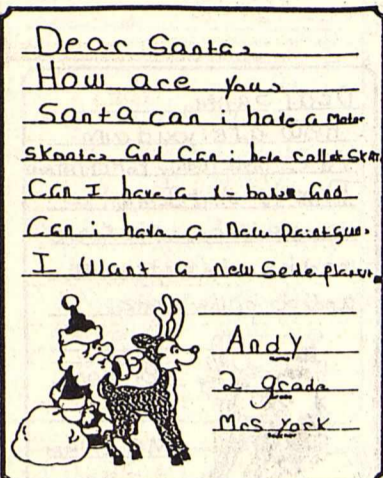 Dear Santa,
How are you,
Santa can i have a Motor
skooter and can i have
Can I have a and
Can i have a new Paintgun,
I want a new
Andy
2 grade
Mrs York